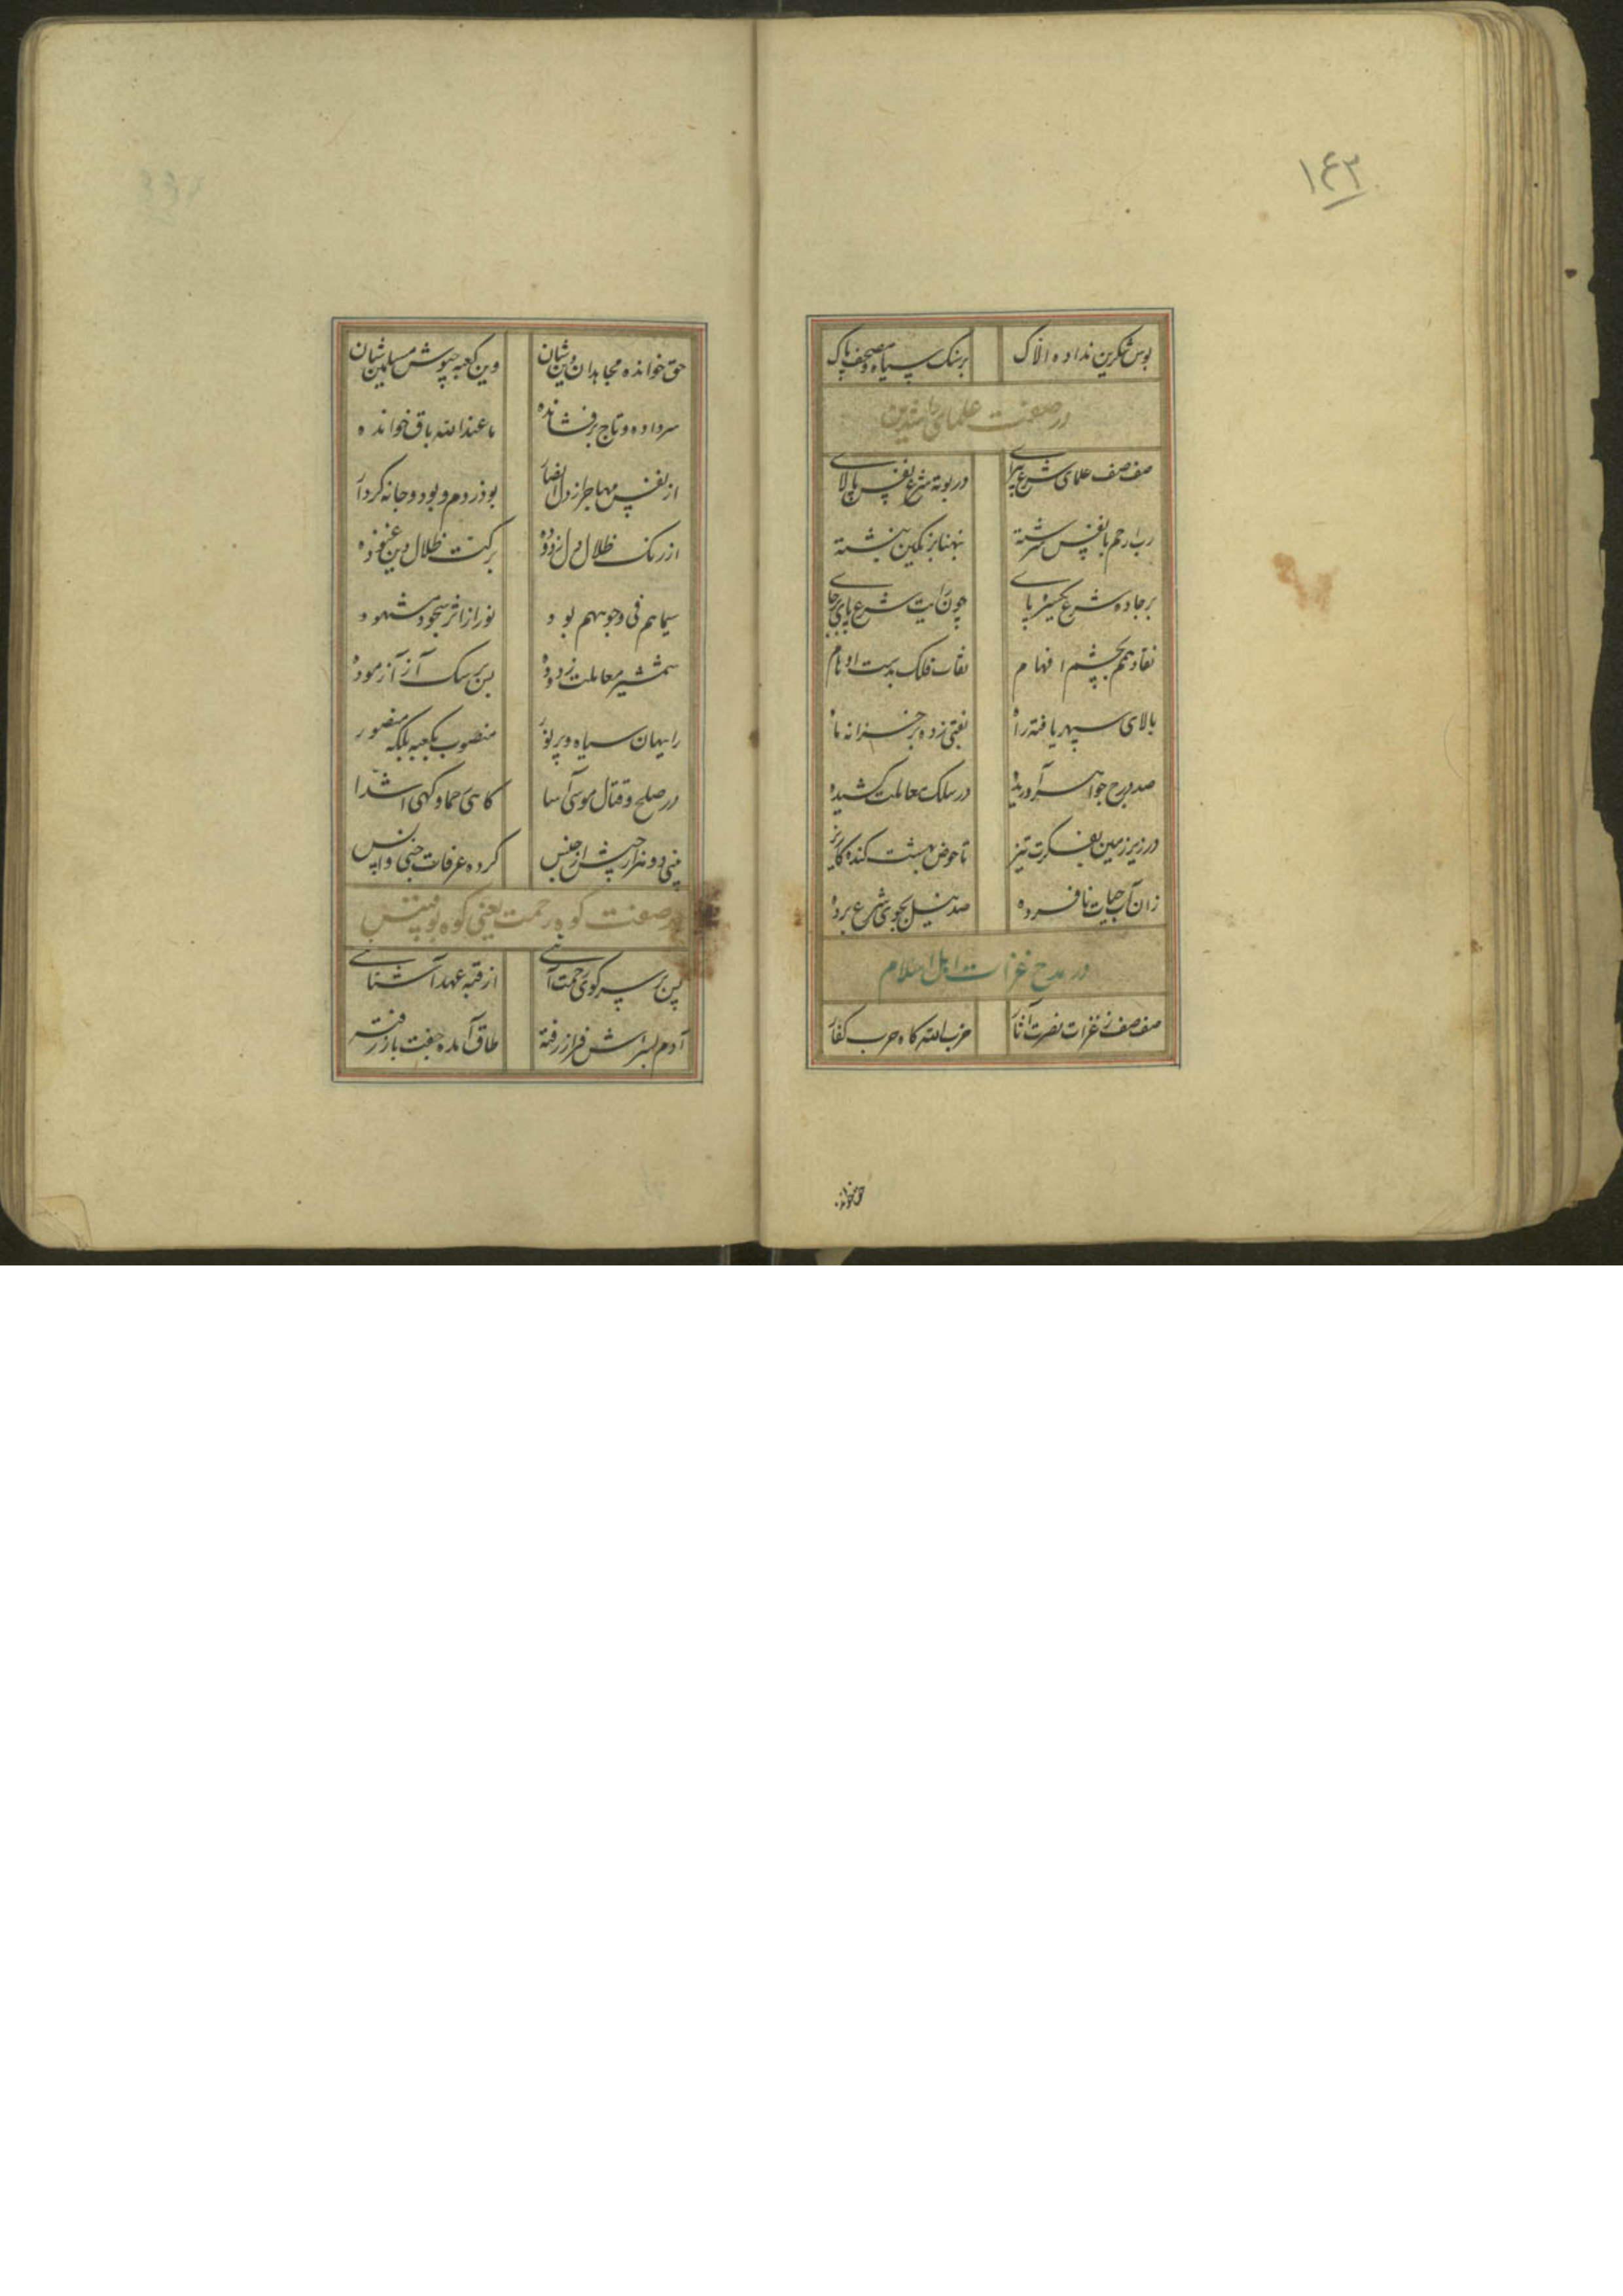 ۱۴۳
بوس شکرین نداده الاک
بر سنک سیاه و مصحف پاک
در صفت علمای راشدین
صف صف علمای شرع پیرای
در بوته شرع نفس پالای
رب ارحم با نفس سرشته
بر جاده شرع تیز پای
چون رایت شرع پای بر جای
نقاد همم بچشم افهام
نقاب فلک بدست اوهام
بالای سپهر یافته راه
نقبی زده بر خزانه ماه
صد درج جواهر آوریده
در سلک معاملت کشیده
در زیر زمین بفکرت تیز
تا حوض بهشت کنده کاریز
زان آب حیات نافسرده
صد نیل بجوی شرع برده
در مدح غزات اهل اسلام
صف صف ز غزات نصرت آثار
حزب الله کاه حرب کفار
حق خوانده
حق خوانده مجاهدان دین شان
وین کعبه جیوش مسلمین شان
سر داده و تاج بر فشانده
ما عند الله باق خوانده
از نفس مهاجر از دل انصار
بوذر دم و بودوجانه کردار
از رنک ظلال دل زدوده
بر کنت ظلال دین غنوده
سیماهم فی وجوههم بود
نور از اثر سجود مشهود
شمشیر معاملت زدوده
پس بر سک آز آزموده
رایهان سیاه و پر نور
منصوب بکعبه بلکه منصور
در صلح و قتال موسی آسا
کاهی رحما و کهی اشدا
بینی دو هزار جیش از جنس
کرده عرفات جنی و انس
در صفت کوه رحمت یعنی کوه بوقبیس
پس بر سر کوی رحمت آئی
از قبه عهد آشنائی
آدم بسراش فراز رفته
طاق آمده جفت باز رفته